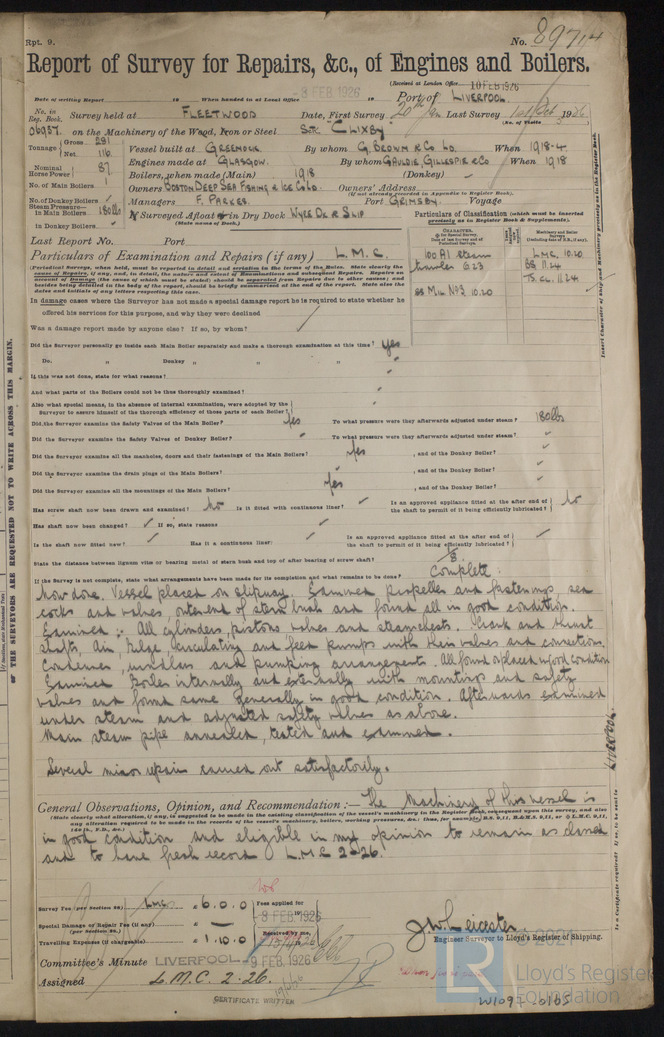 Rpt. 9.
No. 89714
Report of Survey for Repairs, &c., of Engines and Boilers.
(Received at London Office 10 FEB 1926
Date of writing Report 19 When handed in at Local Office 8 FEB 1926 19 Port of LIVERPOOL
No. in Reg. Book. Survey held at FLEETWOOD Date, First Survey 20th Jan Last Survey 1926
(No. of Visits
06937. on the Machinery of the Wood, Iron or Steel "CLIXBY"
Tonnage Gross 291 Net 116
Vessel built at GREENOCK. By whom G. BROWN & Co LD. When 1918-4
Engines made at GLASGOW. By whom GAULDIE, GILLESPIE & Co When 1918
Nominal Horse Power 87
Boilers, when made (Main) 1918 (Donkey)
No. of Main Boilers 1
Owners BOSTON DEEP SEA FISHING & ICE Co LD. Owners' Address
(if not already recorded in Appendix to Register Book.)
No. of Donkey Boilers
Managers F. PARKES. Port GRIMSBY. Voyage
Steam Pressure in Main Boilers 180 lbs
in Donkey Boilers
If Surveyed Afloat or in Dry Dock WYRE DK & SLIP
(State name of Dock.)
Particulars of Classification (which must be inserted precisely as in Register Book & Supplements).
Last Report No. Port
Particulars of Examination and Repairs (if any) L.M.C.
100 A1 steam trawler 6.23
SS Mil. No 3. 10.20
L.M.C. 10.20
BS 11.24
TS. CL. 11.24
In damage cases where the Surveyor has not made a special damage report he is required to state whether he
offered his services for this purpose, and why they were declined
Was a damage report made by anyone else? If so, by whom?
Did the Surveyor personally go inside each Main Boiler separately and make a thorough examination at this time? Yes
Do. " Donkey " " " "
If this was not done, state for what reasons?
And what parts of the Boilers could not be thus thoroughly examined?
Also what special means, in the absence of internal examination, were adopted by the
Surveyor to assure himself of the thorough efficiency of those parts of each Boiler?
Did the Surveyor examine the Safety Valves of the Main Boiler? Yes To what pressure were they afterwards adjusted under steam? 180 lbs
Did the Surveyor examine the Safety Valves of Donkey Boiler? To what pressure were they afterwards adjusted under steam?
Did the Surveyor examine all the manholes, doors and their fastenings of the Main Boilers? Yes , and of the Donkey Boiler?
Did the Surveyor examine the drain plugs of the Main Boilers? , and of the Donkey Boiler?
Did the Surveyor examine all the mountings of the Main Boilers? Yes , and of the Donkey Boiler?
Has screw shaft now been drawn and examined? No Is it fitted with continuous liner? Is an approved appliance fitted at the after end of the shaft to permit of it being efficiently lubricated? No
Has shaft now been changed? If so, state reasons
Is the shaft now fitted new? Has it a continuous liner? Is an approved appliance fitted at the after end of the shaft to permit of it being efficiently lubricated?
State the distance between lignum vitæ or bearing metal of stern bush and top of after bearing of screw shaft?
If the Survey is not complete, state what arrangements have been made for its completion and what remains to be done? Complete
Now done. Vessel placed on slipway. Examined propeller and fastenings, sea
cocks and valves, outer end of stern bush and found all in good condition.
Examined :- All cylinders, pistons valves and steamchests. Crank and thrust
shafts, Air, Bilge, Circulating and feed pumps with their valves and connections.
Condenser, windlass and pumping arrangement. All found or placed in good condition
Examined Boiler internally and externally with mountings and safety
valves and found same generally in good condition. Afterwards examined
under steam and adjusted safety valves as above.
Main steam pipe annealed, tested and examined.
Several minor repairs carried out satisfactorily.
General Observations, Opinion, and Recommendation :— The Machinery of this vessel is
in good condition and eligible in my opinion to remain as classed
and to have fresh record L.M.C 2-26.
Survey Fee (per Section 29) L.M.C. £ 6.0.0 Fees applied for
Special Damage or Repair Fee (if any) (per Section 29.) £ 8 FEB 1926
Travelling Expenses (if chargeable) £ 1.10.0 Received by me,
J W Leicester
Engineer Surveyor to Lloyd's Register of Shipping.
Committee's Minute LIVERPOOL 9 FEB. 1926
Assigned L.M.C. 2.26.
CERTIFICATE WRITTEN
© 2021
LR Lloyd's Register
Foundation
W1097-0165
OF THE SURVEYORS ARE REQUESTED NOT TO WRITE ACROSS THIS MARGIN.